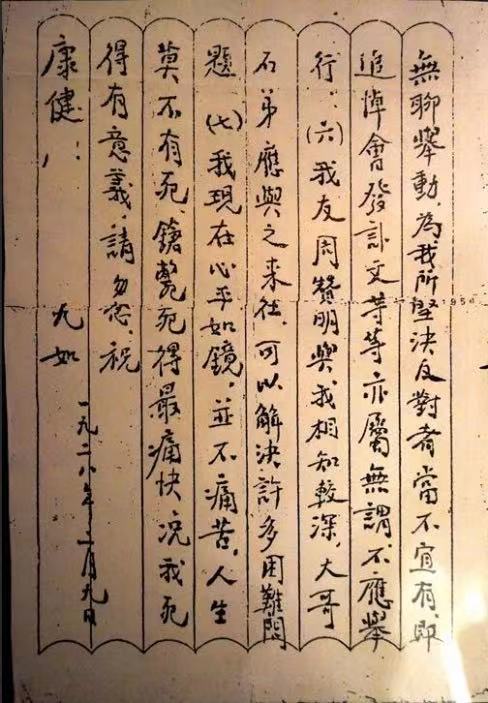 無聊舉動，為我所堅決反對者當不宜有，即
追悼會發訃文等等亦屬無謂，不應舉
行：(六)我友周贊明與我相知較深，大哥
石弟應與之来往，可以解決許多困難問
題 (七)我現在心平如鏡，並不痛苦，人生
莫不有死，鎗斃死得最痛快，况我死
得有意義，請勿念，祝
康健！
九如
一九二八年 月九日